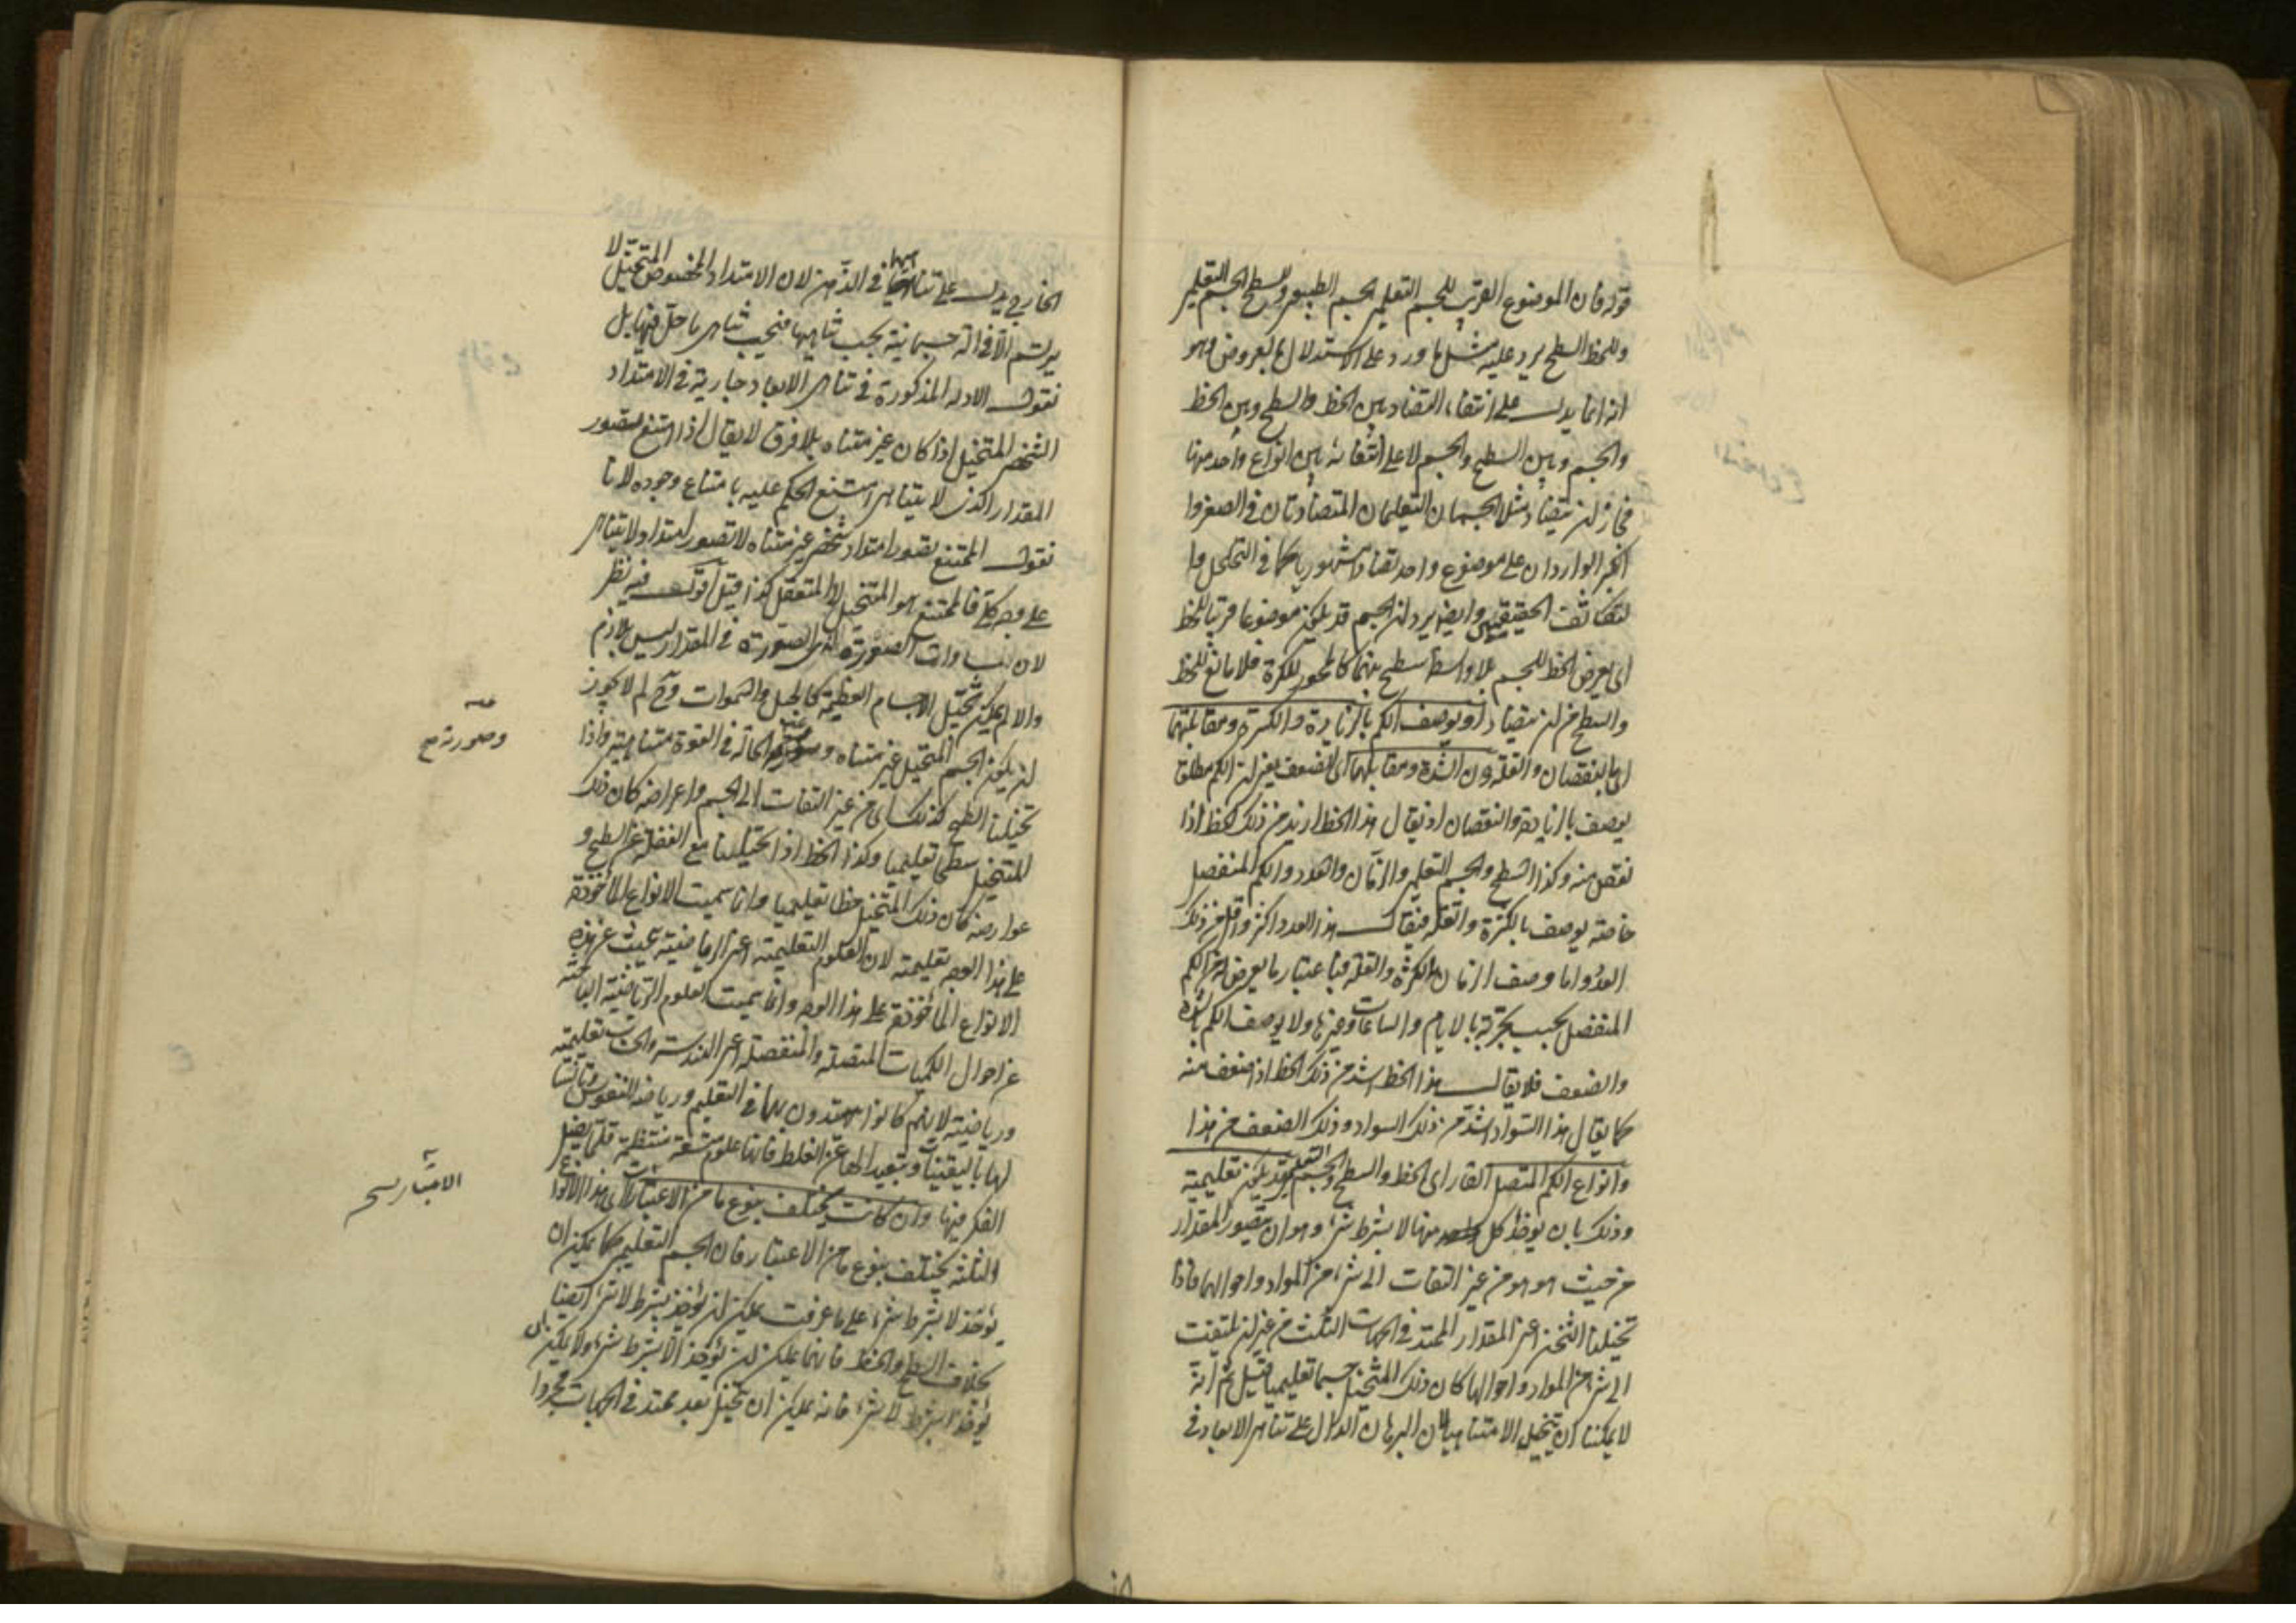 قوله فان الموضوع القريب للجسم التعليمي الجسم الطبيعي وللسطح الجسم التعليمي
وللخط السطح يرد عليه مثل ما ورد على الاستدلال بالعروض وهو
انه انما يدل على انتفاء التضاد بين الخط والسطح وبين الخط
والجسم وبين السطح والجسم لا على انتفائه بين انواع واحد منها
فجاز ان يتضاد مثل الجسمان التعليميان المتضادتان في الصغر وا
لكبر الواردان على موضوع واحد تضادا مشهوريا كما في التخلخل وا
لتكاثف الحقيقيين وايضا يرد ان الجسم قد يكون موضوعا قريبا للخط
اي يعرض الخط للجسم بلا واسطة سطح بينهما كالمحور للكرة فلا مانع للخط
والسطح من ان يتضادا ويوصف الكم بالزيادة والكثرة ومقابلتهما
اي النقصان والقلة دون الشدة ومقابلها اي الضعف يعني ان الكم مطلقا
يوصف بالزيادة والنقصان اذ يقال هذا الخط ازيد من ذلك الخط اذا
نقص منه وكذا السطح والجسم التعليمي والزمان والعدد والكم المنفصل
خاصة يوصف بالكثرة والقلة فيقال هذا العدد اكثر واقل من ذلك
العدد واما وصف الزمان بالكثرة والقلة فباعتبار ما يعرض له من الكم
المنفصل بحسب تجزيه بالايام والساعات وغيرها ولا يوصف الكم بالشدة
والضعف فلا يقال هذا الخط اشد من ذلك الخط اذ اضعف منه
كما يقال هذا السواد اشد من ذلك السواد وذلك اضعف من هذا
وانواع الكم المتصل القار اي الخط والسطح والجسم التعليمي قد يكون تعليمية
وذلك بان يوخذ كل منها لا بشرط شئ وهو ان يتصور المقدار
من حيث هو هو من غير التفات الى شئ من المواد واحوالها فاذا
تخيلنا الثخن اعني المقدار الممتد في الجهات الثلث من غير ان نلتفت
الى شئ من المواد واحوالها كان ذلك المتخيل جسما تعليميا قيل ثم انه
لا يمكننا ان نتخيله الا متناهيا لان البرهان الدال على تناهي الابعاد في
الخارج يدل على تناهيها في الذهن لان الامتداد المخصوص المتخيل لا
يرتسم الا في الة جسمانية يجب تناهيها فيجب تناهي ما حل فيها بل
نقول الادلة المذكورة في تناهي الابعاد جارية في الامتداد
الشخصي المتخيل اذا كان غير متناه بلا فرق لا يقال اذا امتنع تصور
المقدار الذي لا يتناهى امتنع الحكم عليه بامتناع وجوده لانا
نقول الممتنع تصور امتداد شخصي غير متناه لا تصور امتداد لا يتناهى
على وجه كلي فالممتنع هو المتخيل لا المتعقل كذا قيل اقول فيه نظر
لان مساوات الصورة لذي الصورة في المقدار ليس بلازم
والا لم يمكن تخيل الاجسام العظيمة كالجبل والسموات وح لم لا يجوز
ان يكون الجسم المتخيل غير متناه وصورته الحالة في القوة متناهية واذا
تخيلنا السطح كذلك اي من غير التفات الى الجسم واعراضه كان ذلك
المتخيل سطحا تعليميا وكذا الخط اذا تخيلناه مع الغفلة عن السطح و
عوارضه كان ذلك المتخيل خطا تعليميا وانما سميت الانواع الماخوذة
على هذا الوجه تعليمية لان العلوم التعليمية اعني الرياضية تبحث عن هذه
الانواع الماخوذة على هذا الوجه وانما سميت العلوم الرياضية الباحثة
عن احوال الكميات المتصلة والمنفصلة اعني الهندسة والحساب تعليمية
ورياضية لانهم كانوا يبتدون بها في التعليم ورياضة النفوس وتانيسا
لها باليقينيات وتبعيدا لها عن الغلط فانها علوم متسقة منتظمة قلما يضل
الفكر فيها وان كانت يختلف بنوع ما من الاعتبارات اي هذه الانواع
الثلثة يختلف بنوع ما من الاعتبار فان الجسم التعليمي كما يمكن ان
يؤخذ لا بشرط شئ على ما عرفت يمكن ان يؤخذ بشرط لا شئ ايضا
بخلاف السطح والخط فانهما يمكن ان يؤخذ الا بشرط شئ ولا يمكن ان
يؤخذا بشرط لا شئ فانه يمكن ان تخيل بعد ممتد في الجهات مجردا
وصورته صح